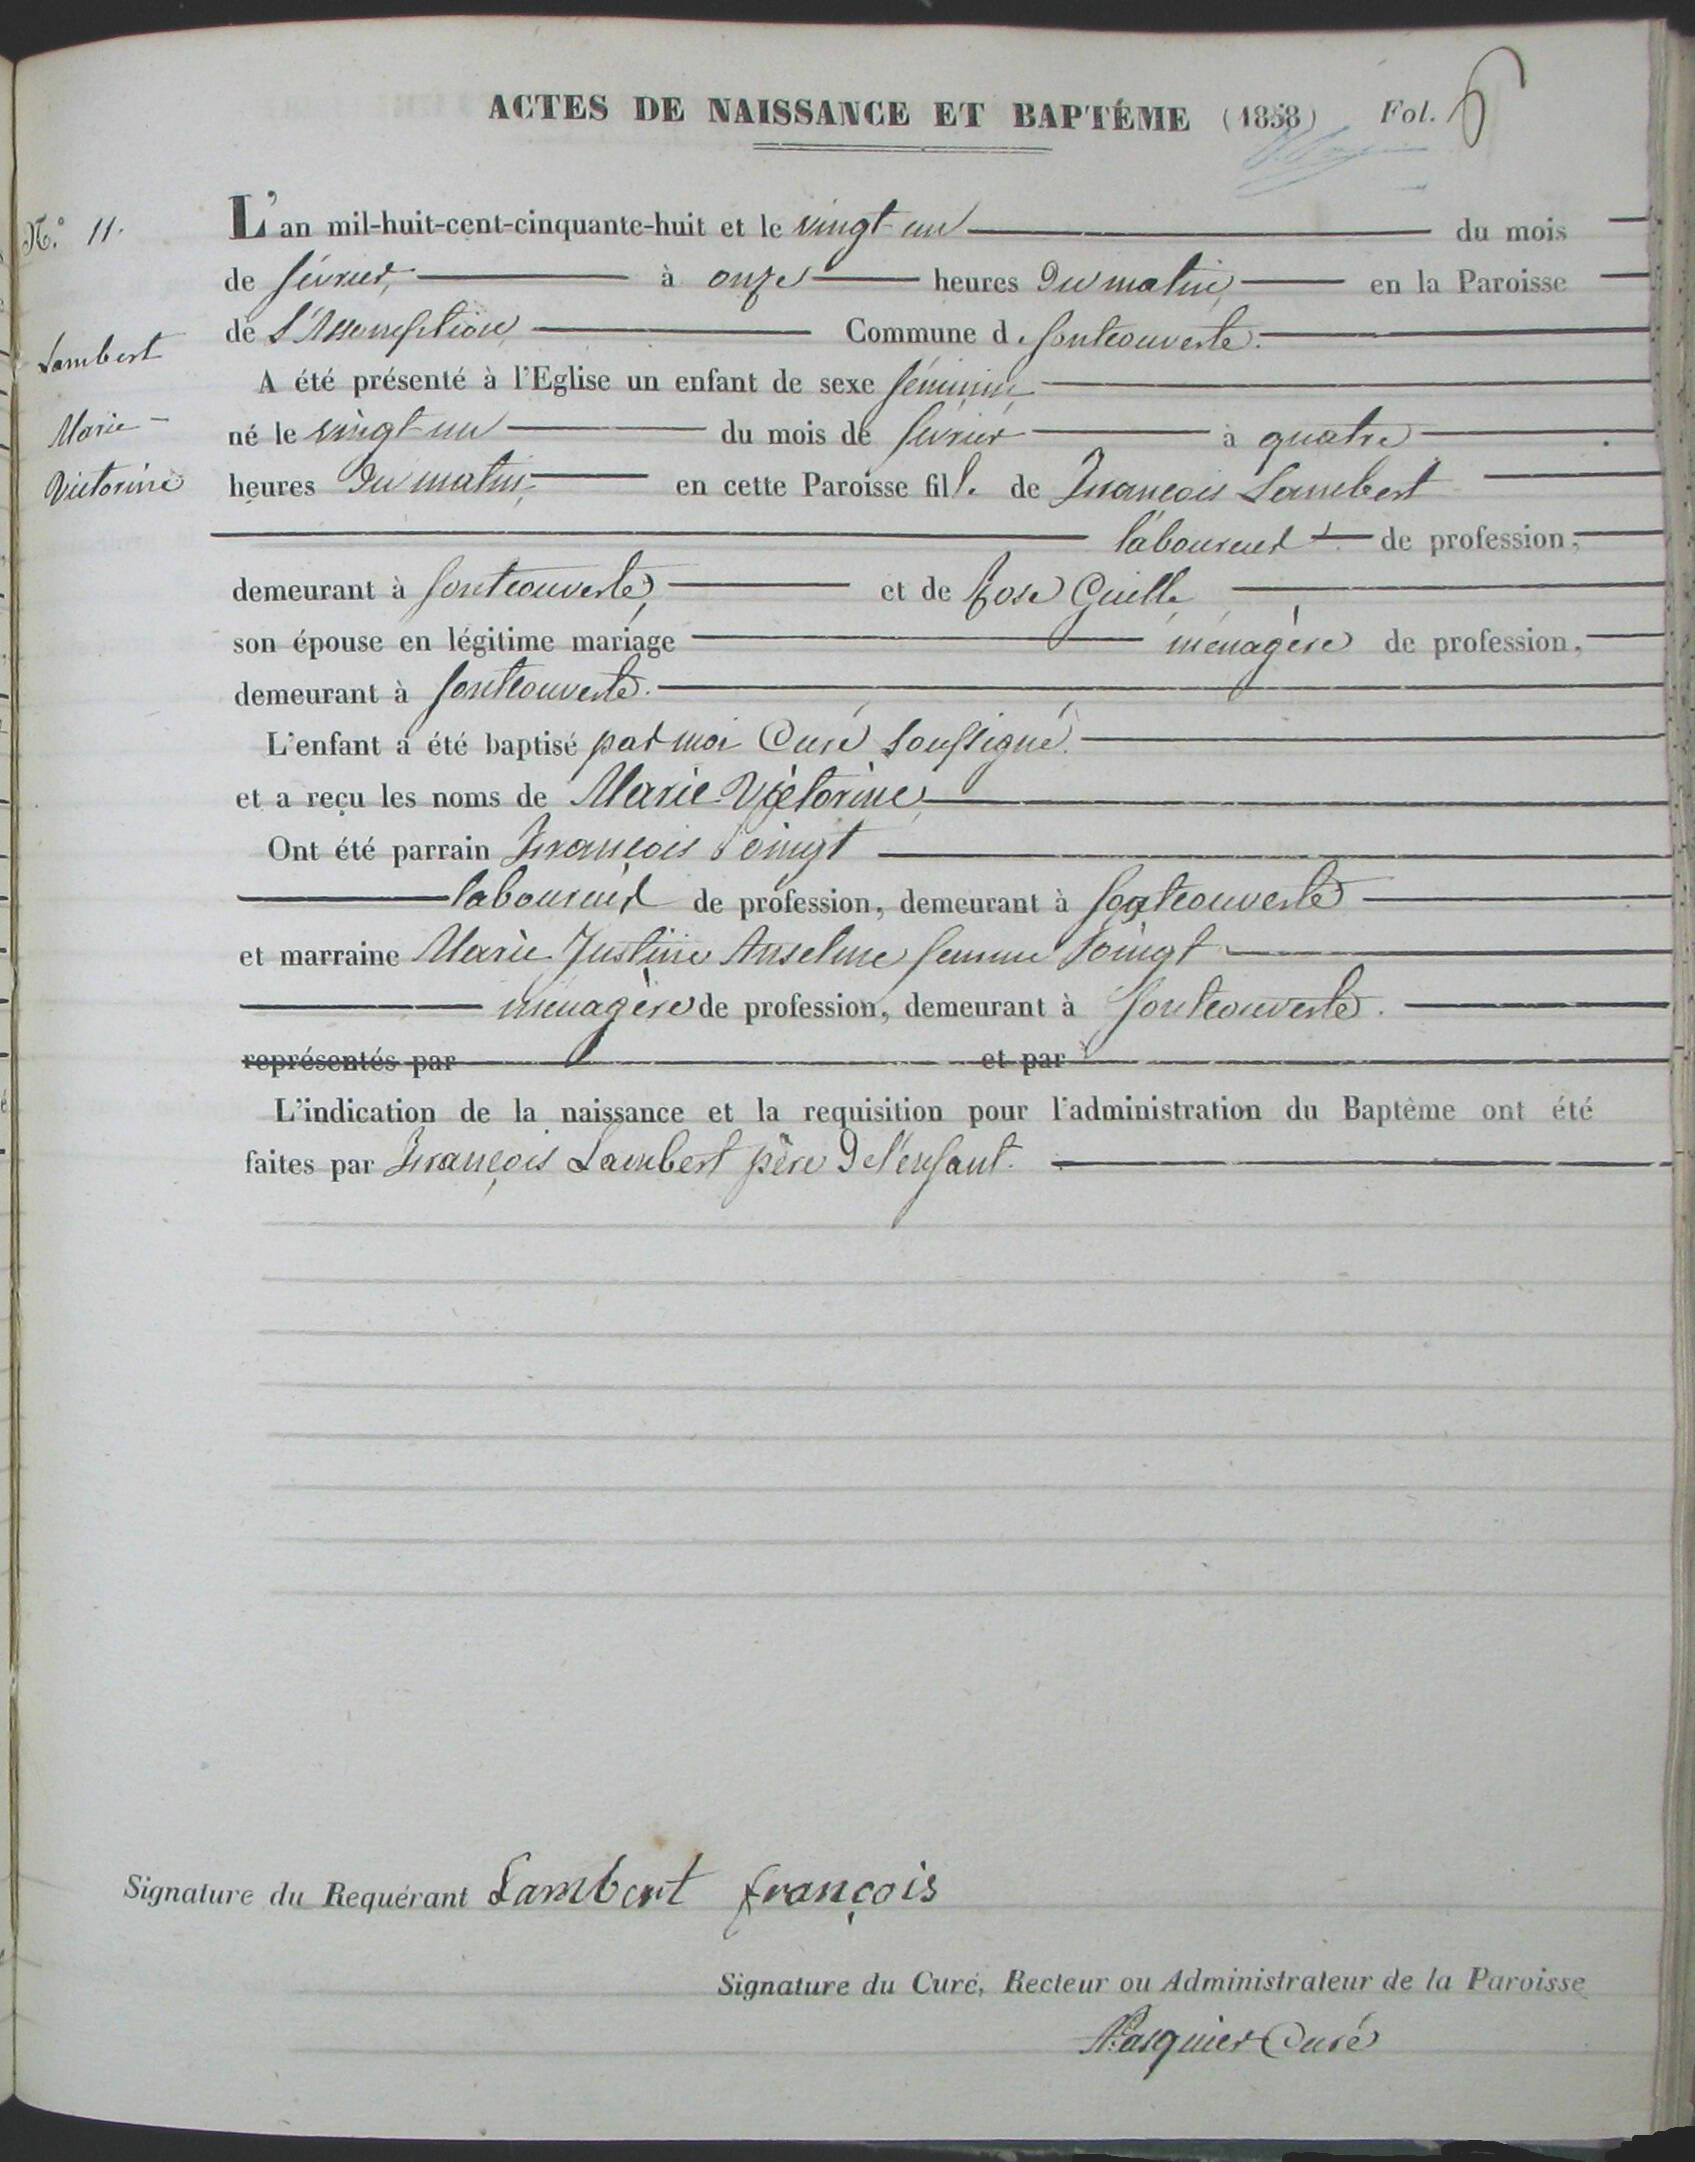 ACTES DE NAISSANCE ET BAPTÉME (1858) Fol. 6
N.° 11.
L'an mil-huit-cent-cinquante-huit et le vingt-un du mois
de février, à onze heures du matin, en la Paroisse
de L'Assomption Commune d. fontcouverte.
Lambert
A été présenté à l'Eglise un enfant de sexe féminin
Marie-
né le vingt-un du mois de février à quatre
Victorine
heures du matin, en cette Paroisse fill. de François Lambert
laboureur de profession,
demeurant à fontcouverte, et de Rose Guille
son épouse en légitime mariage ménagère de profession,
demeurant à fontcouverte.
L'enfant a été baptisé par moi Curé soussigné.
et a reçu les noms de Marie Victorine
Ont été parrain François Soingt
laboureur de profession, demeurant à fontcouverte
et marraine Marie Justine Anselme femme Soingt
ménagère de profession, demeurant à fontcouverte.
représentés par et par
L'indication de la naissance et la requisition pour l'administration du Baptême ont été
faites par François Lambert père de l'enfant.
Signature du Requérant Lambert françois
Signature du Curé, Recteur ou Administrateur de la Paroisse
Pasquier Curé